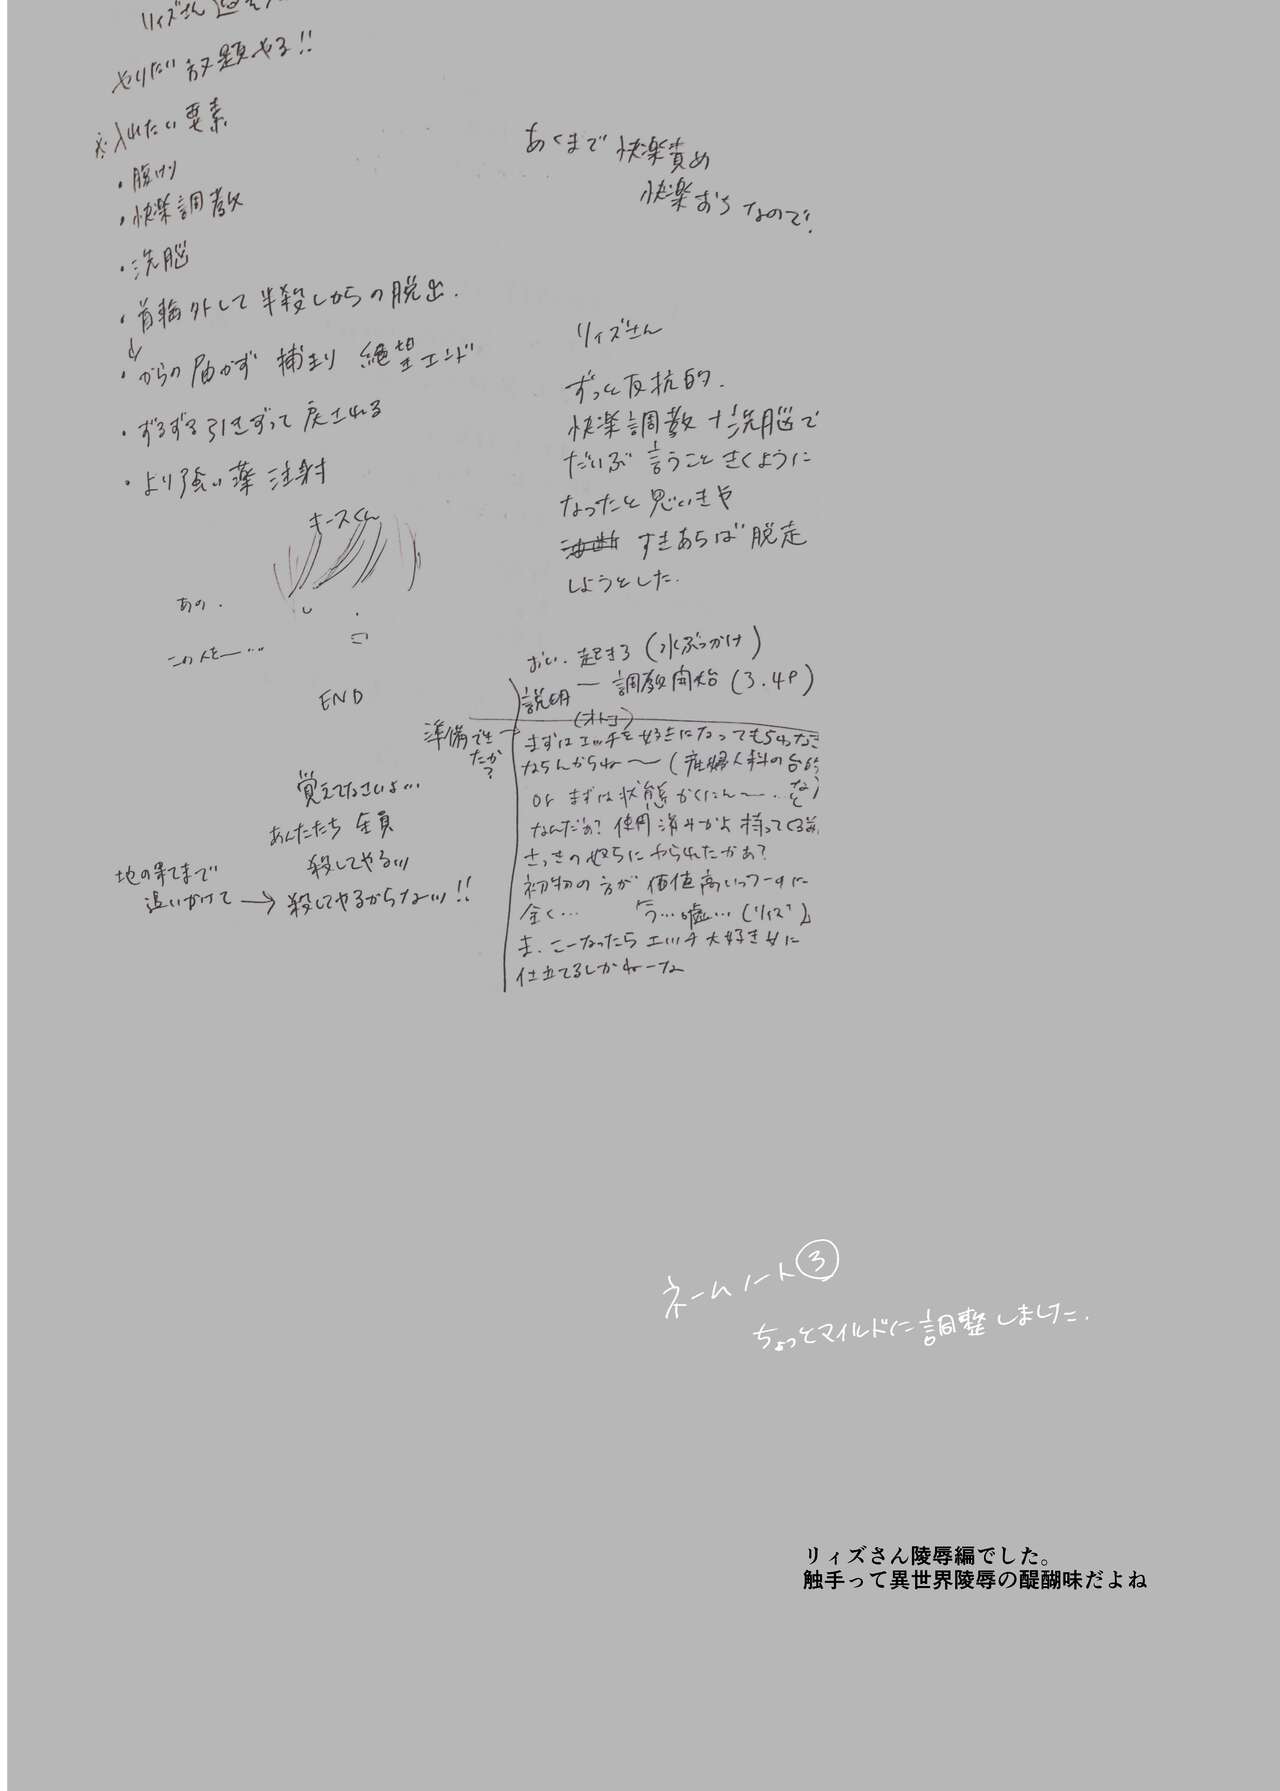 リィズさん
やりたい放題やる!!
※入れたい要素
・腹けり
・快楽調教
・洗脳
・首輪外して半殺しからの脱出.
↓
・からの届かず 捕まり 絶望エンド
・ずるずる引きずって戻される
・より強い薬 注射
キースくん
あの.
この人を―…
END
覚えてなさいよ…
あんたたち 全員
殺してやるッ
地の果てまで
追いかけて → 殺してやるからなッ!!
あくまで快楽責め
快楽おちなので!
リィズさん
ずっと反抗的.
快楽調教+洗脳で
だいぶ言うこときくように
なったと思いきや
油断 すきあらば脱走
しようとした.
おい. 起きろ (水ぶっかけ)
説明 ― 調教開始 (3.4P)
(オトコ)
準備できたか? →
まずはエッチを好きになってもらわなき
ならんからね〜 (産婦人科の台的
or まずは状態かくにん〜‥など)
なんだぁ? 使用済みかよ 持ってくる前
さっきの奴らにやられたかぁ?
初物の方が価値高いっつーのに
全く… 「う…嘘…(リィズ)」
ま. こーなったらエッチ大好き女に
仕立てるしかねーな
ネームノート③
ちょっとマイルドに調整しました.
リィズさん陵辱編でした。
触手って異世界陵辱の醍醐味だよね